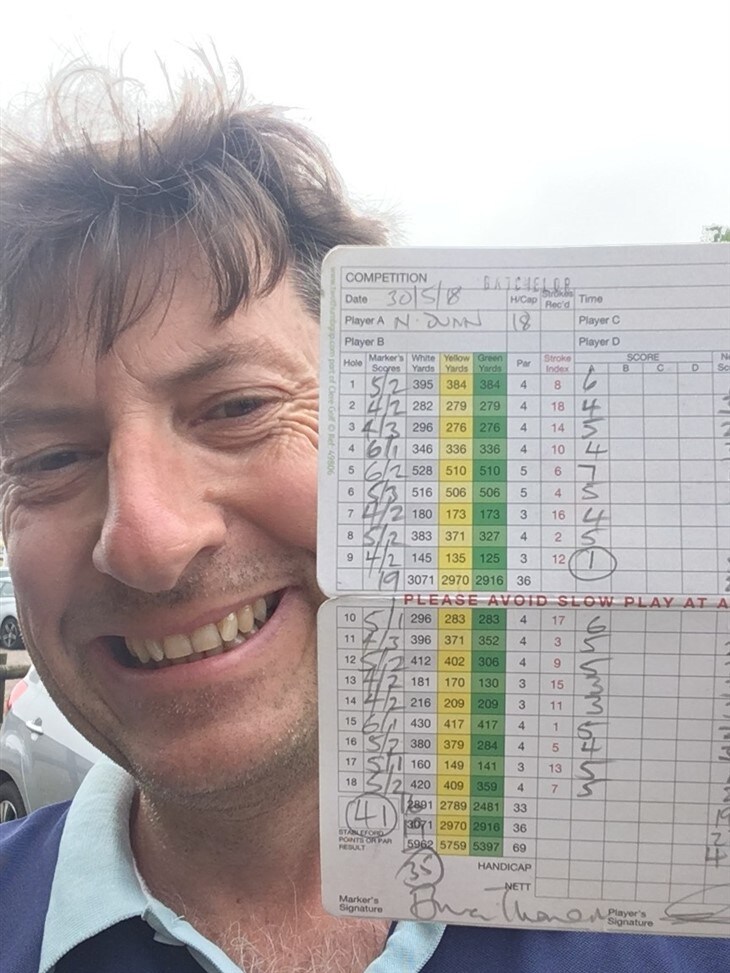 COMPETITION BATCHELOR
Date 30/5/18 H/Cap Strokes Rec'd Time
Player A N. DUNN 18 Player C
Player B Player D
Hole Marker's Scores White Yards Yellow Yards Green Yards Par Stroke Index SCORE
B C D
1 5/2 395 384 384 4 8 6
2 4/2 282 279 279 4 18 4
3 4/3 296 276 276 4 14 5
4 6/1 346 336 336 4 10 4
5 6/2 528 510 510 5 6 7
6 5/3 516 506 506 5 4 5
7 4/2 180 173 173 3 16 4
8 5/2 383 371 327 4 2 5
9 4/2 145 135 125 3 12 1
19 3071 2970 2916 36
PLEASE AVOID SLOW PLAY AT A
10 5/1 296 283 283 4 17 6
11 4/3 396 371 352 4 3 5
12 5/2 412 402 306 4 9 5
13 4/2 181 170 130 3 15 3
14 4/2 216 209 209 3 11 3
15 6/1 430 417 417 4 1 5
16 5/2 380 379 284 4 5 4
17 5/1 160 149 141 3 13 5
18 5/2 420 409 359 4 7 5
41 2891 2789 2481 33
3071 2970 2916 36
STABLEFORD POINTS OR PAR RESULT 5962 5759 5397 69
35 HANDICAP
NETT
Marker's Signature Player's Signature